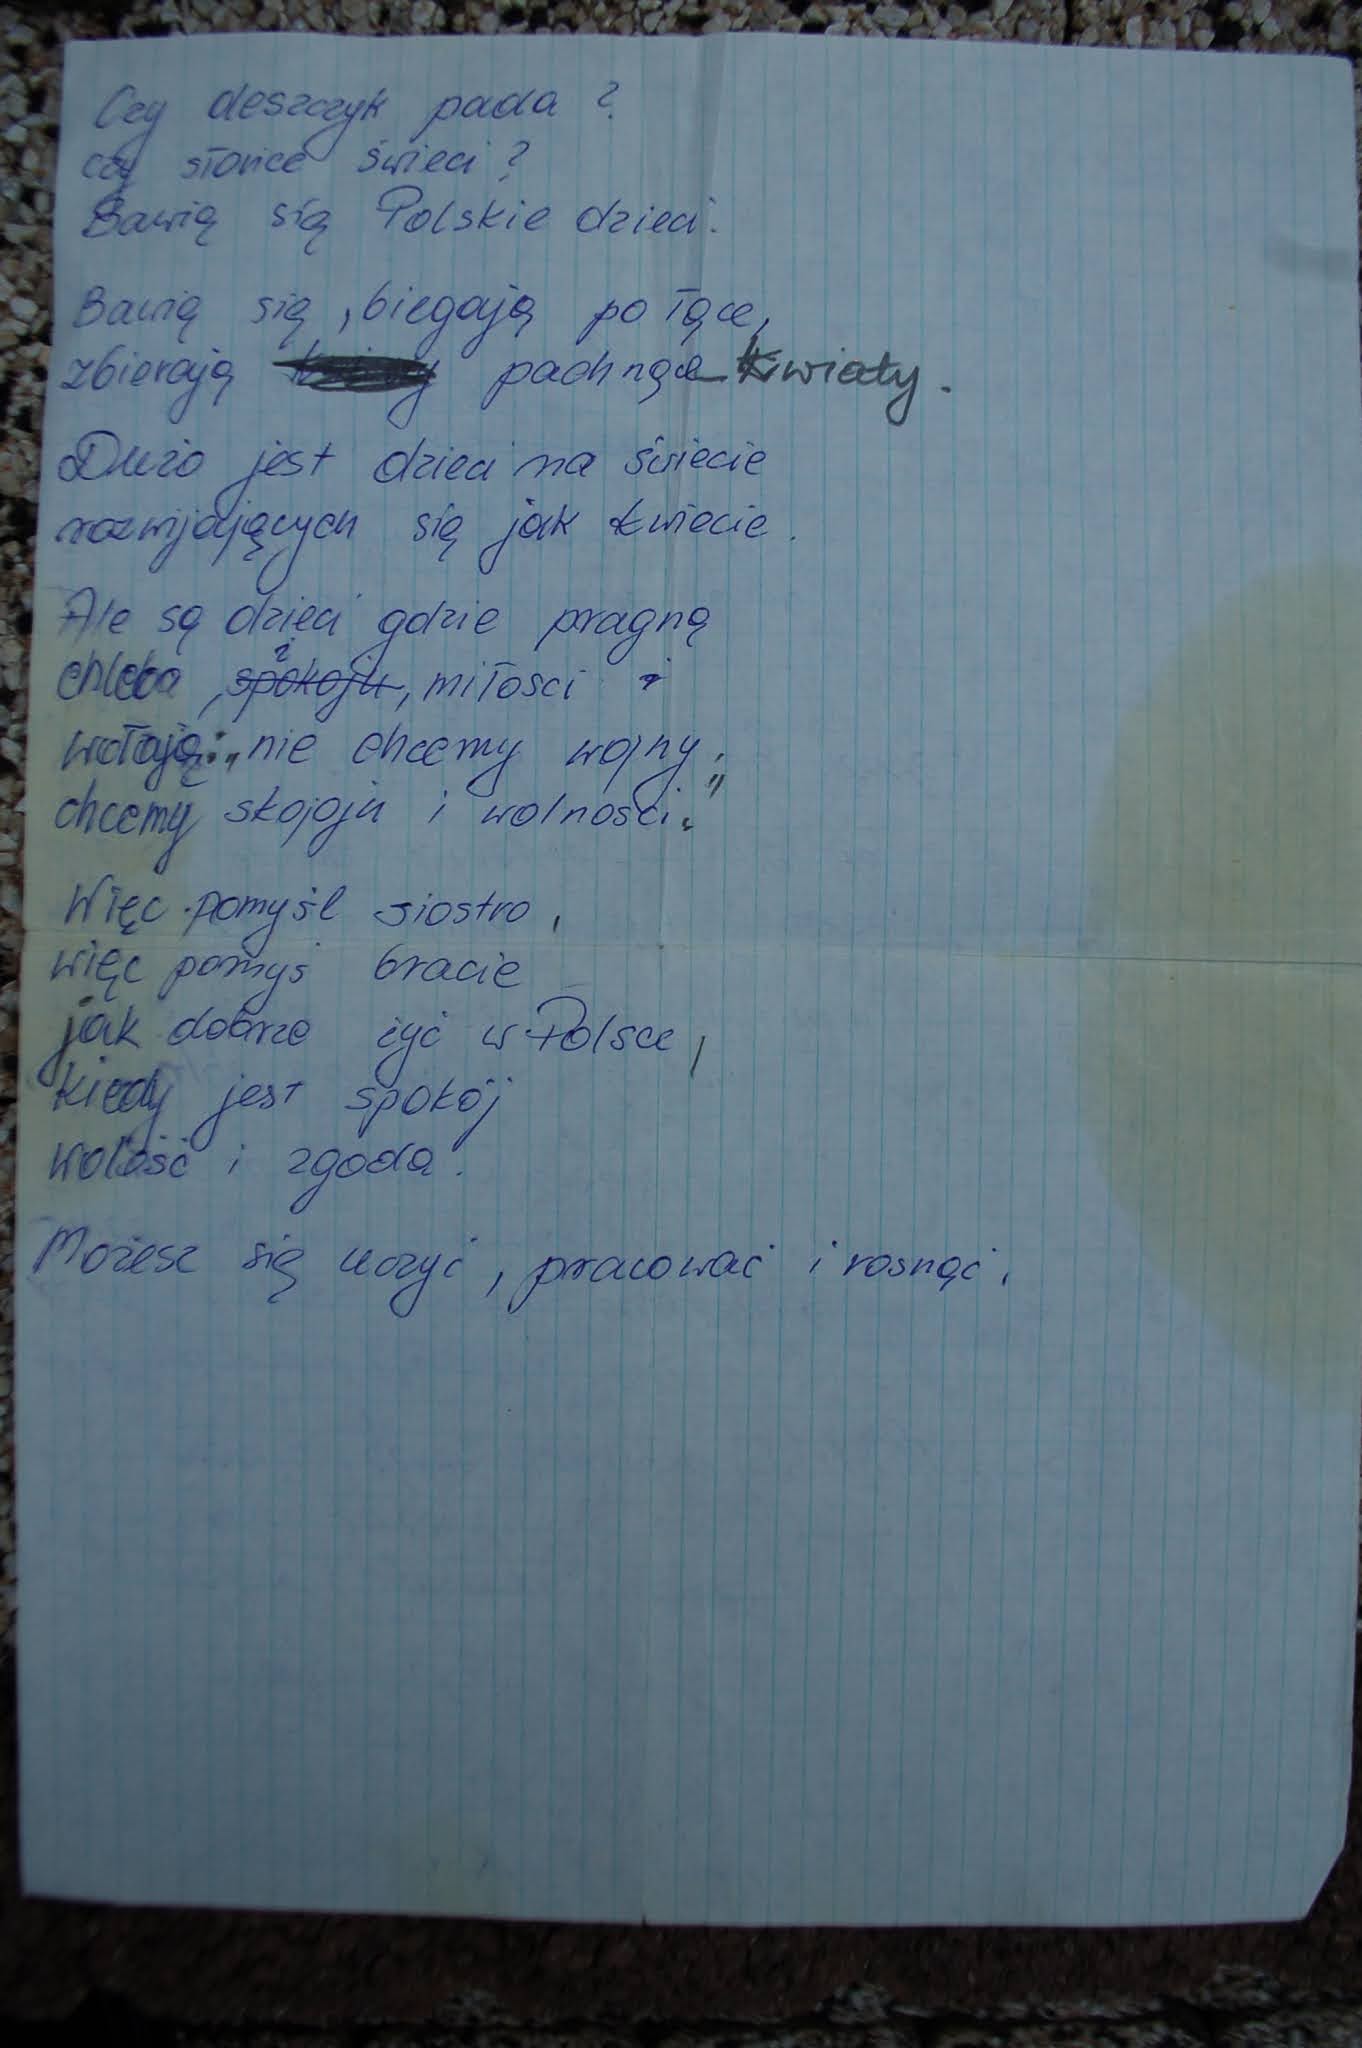 Czy deszczyk pada?
czy słońce świeci?
Bawią sią Polskie dzieci.
Bawią sią, biegają po łące,
zbierają pachnące kwiaty.
Dużo jest dzieci na świecie
rozwijających sią jak kwiecie.
Ale są dzieci gdzie pragną
chleba, spokoju, i miłości i
wołają: „nie chcemy wojny,
chcemy skojoju i wolności."
Więc pomyśl siostro,
więc pomyś bracie
jak dobrze żyć w Polsce,
kiedy jest spokój
wolość i zgoda.
Możesz sią uczyć, pracować i rosnąć.